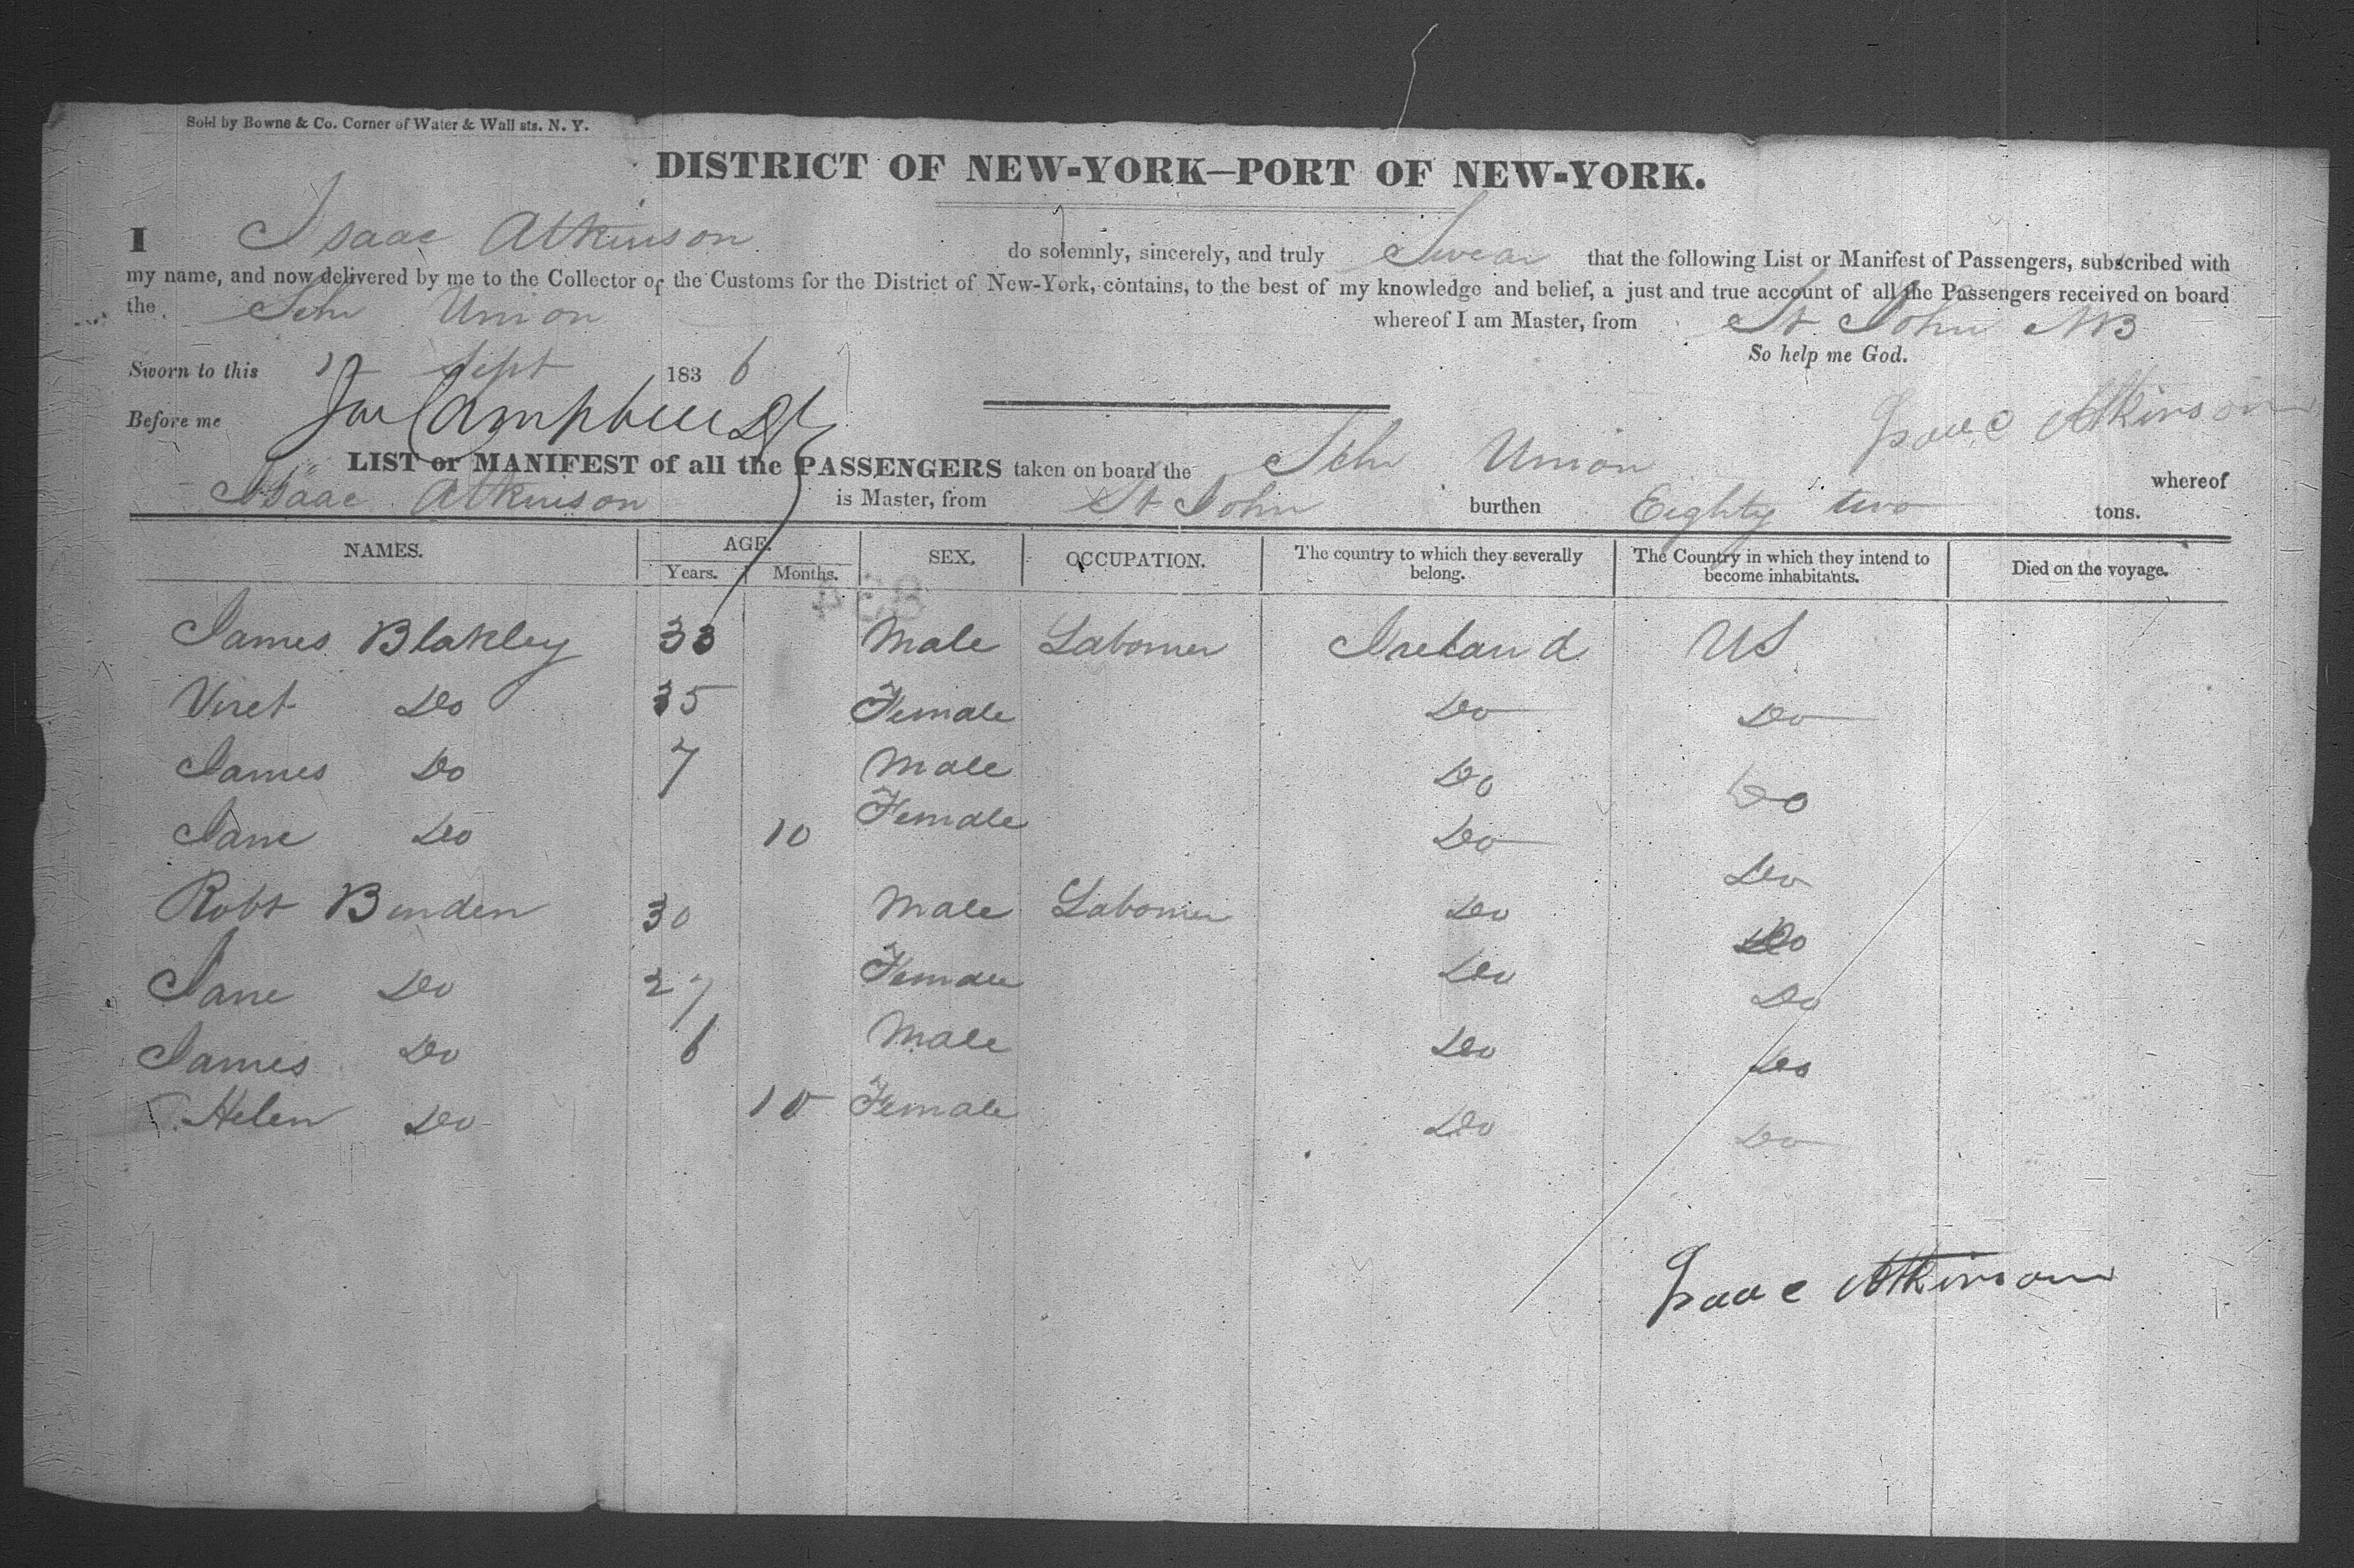 Sold by Bowne & Co. Corner of Water & Wall sts. N. Y.
DISTRICT OF NEW-YORK—PORT OF NEW-YORK.
I Isaac Atkinson do solemnly, sincerely, and truly Swear that the following List or Manifest of Passengers, subscribed with
my name, and now delivered by me to the Collector of the Customs for the District of New-York, contains, to the best of my knowledge and belief, a just and true account of all the Passengers received on board
the Schr Union whereof I am Master, from St John NB
So help me God.
Sworn to this Sept 1836
Before me Campbell Isaac Atkinson
LIST or MANIFEST of all the PASSENGERS taken on board the Schr Union whereof
Isaac Atkinson is Master, from St John burthen Eighty two tons.
NAMES. AGE. Years. Months. SEX. OCCUPATION. The country to which they severally belong. The Country in which they intend to become inhabitants. Died on the voyage.
James Blakley 33 Male Labourer Ireland US
Do 35 Female Do Do
James Do 7 Male Do Do
Jane Do 10 Female Do Do
Robt 30 Male Labourer Do Do
Jane Do 27 Female Do Do
James Do 6 Male Do Do
Helen Do 10 Female Do Do
Isaac Atkinson